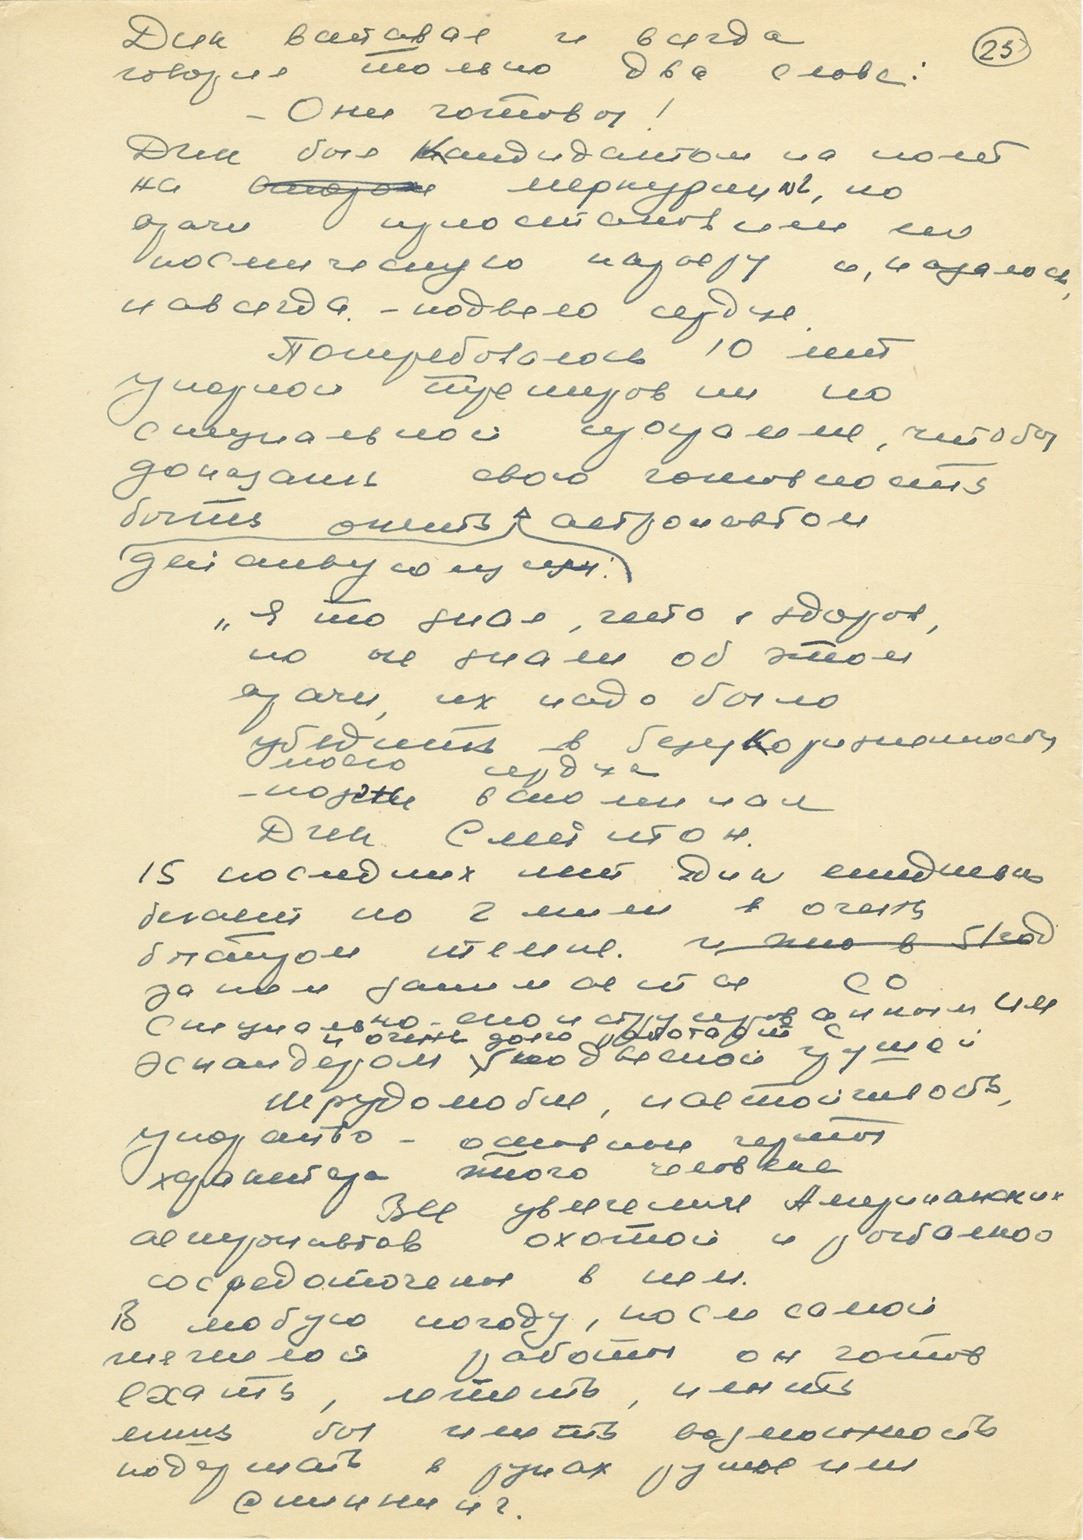 25
Дик вставал и всегда
говорил только два слова:
– Они готовы!
Дик был кандидатом на полет
на Меркурии №2, но
врачи приостановили его
космическую карьеру и, казалось,
навсегда. – подвело сердце.
Потребовалось 10 лет
упорной тренировки по
специальной программе, чтобы
доказать свою готовность
быть опять астронавтом
действующим:
„Я то знал, что я здоров,
но не знали об этом
врачи, их надо было
убедить в безукоризненности
моего сердца
– позже вспоминал
Дик Слейтон.
15 последних лет Дик ежедневно
бегает по 2 мили в очень
быстром темпе. и это в 51 год
затем занимается со
специально сконструированным им
и очень долго работает с
эспандером подвесной грушей
Трудолюбие, настойчивость,
упорство – основные черты
характера этого человека
Все увлечение Американских
астронавтов охотой и рыбалкой
сосредоточены в нем.
В любую погоду, после самой
тяжелой работы он готов
ехать, лететь, плыть
лишь бы иметь возможность
подержать в руках ружье или
спиннинг.